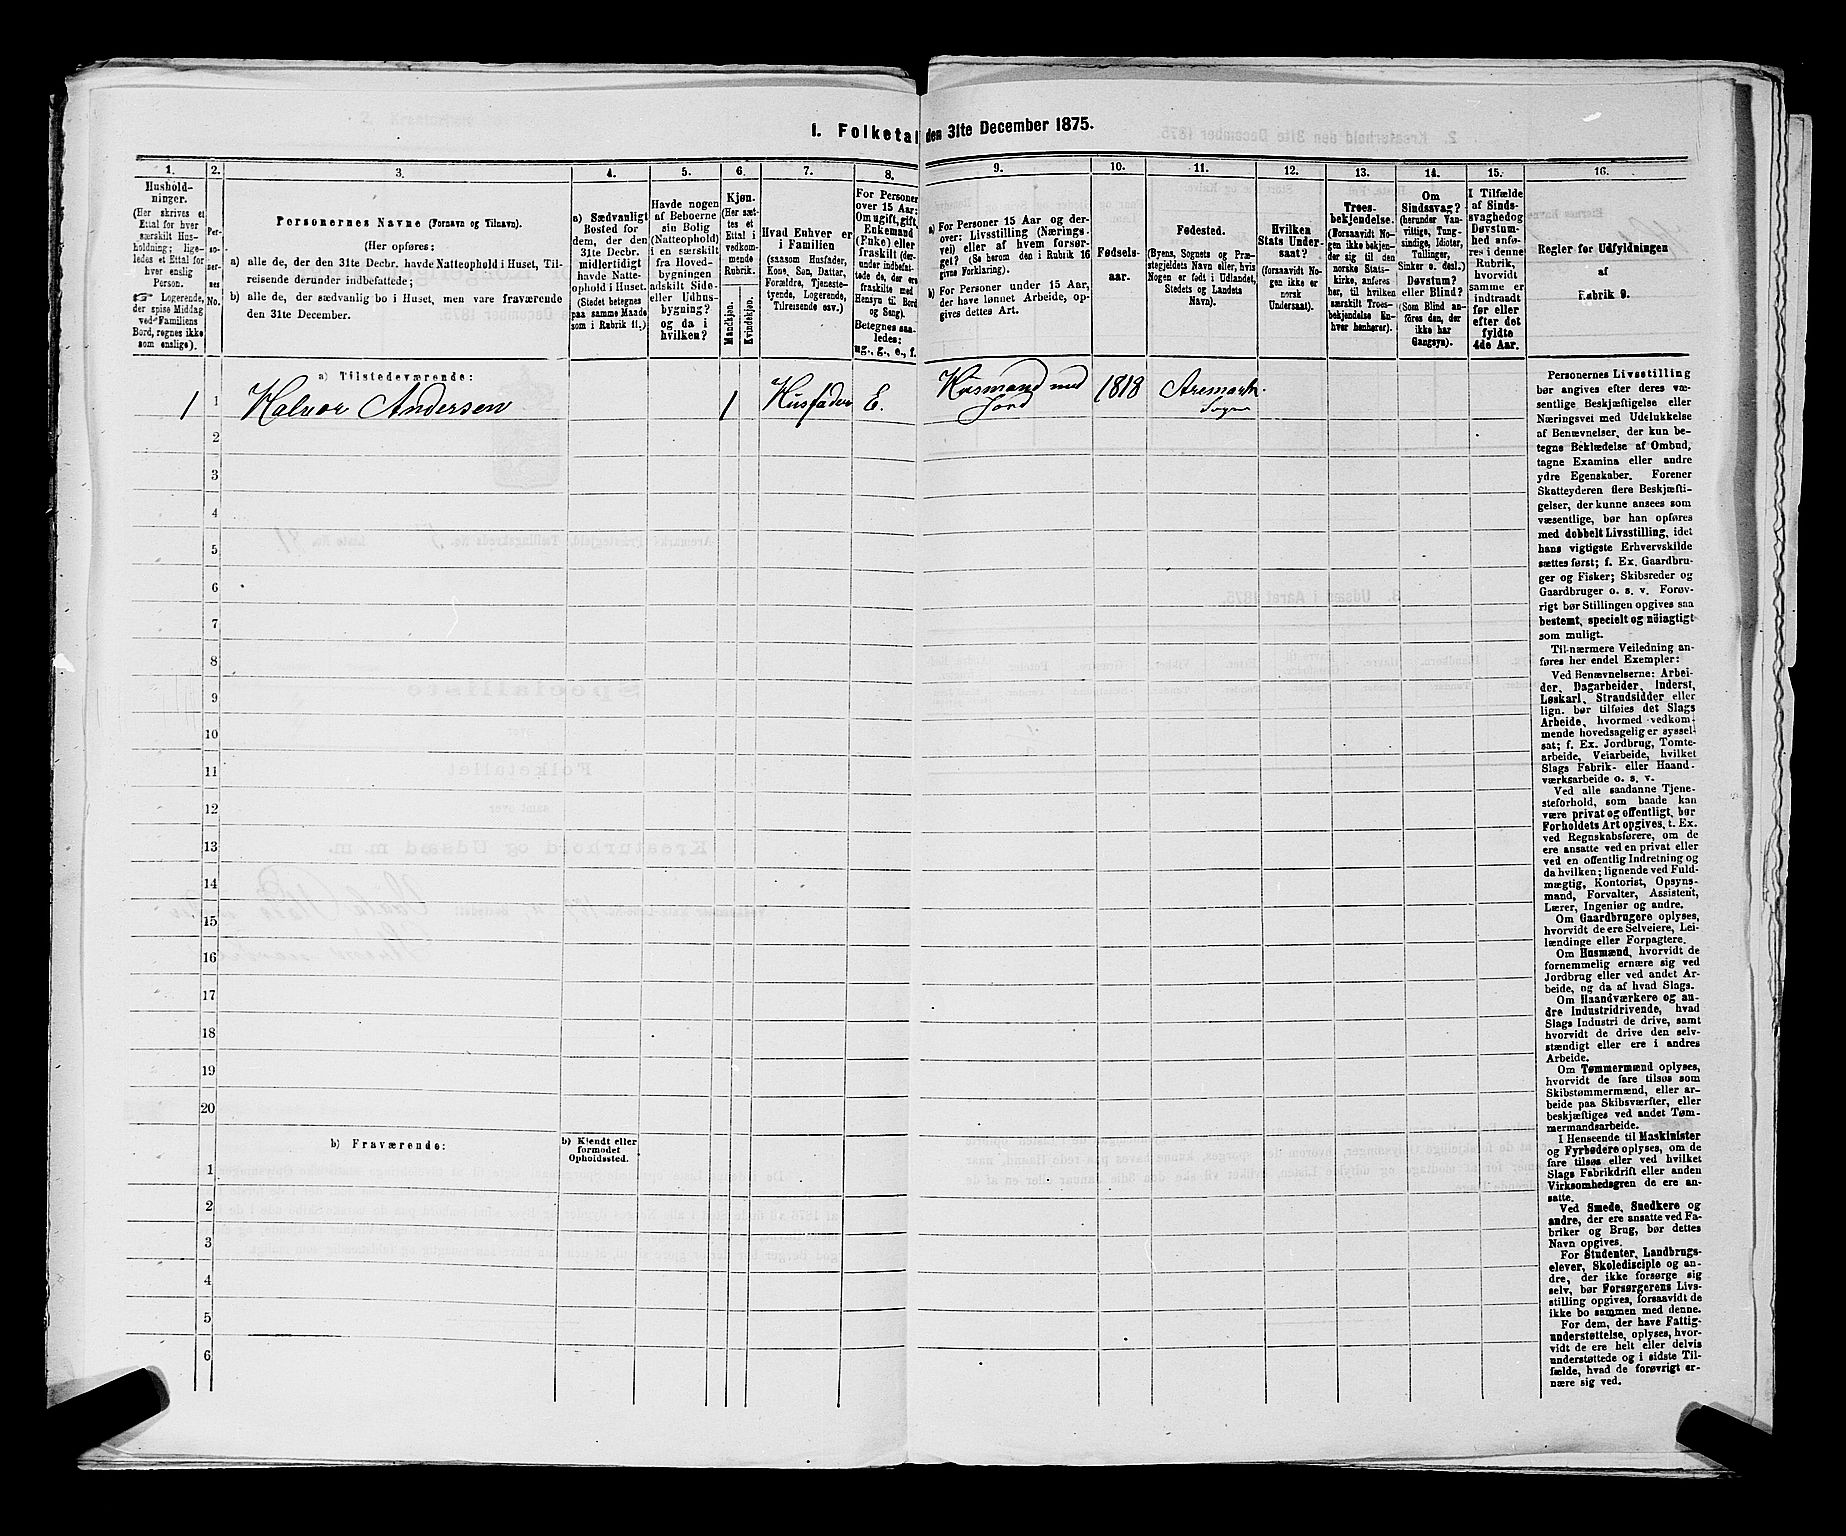 1. Folketal den 31te December 1875.
1.
Hushold-
ninger.
(Her skrives et
Ettal for hver
særskilt Hus-
holdning; lige-
ledes et Ettal for
hver enslig
Person.
☞ Logerende,
der spise Middag
ved Familiens
Bord, regnes ikke
som enslige).
2.
Per-
so-
ner-
nes
No.
3.
Personernes Navne (Fornavn og Tilnavn).
(Her opføres:
a) alle de, der den 31te Decbr. havde Natteophold i Huset, Til-
reisende derunder indbefattede;
b) alle de, der sædvanlig bo i Huset, men vare fraværende
den 31te December.
4.
a) Sædvanligt
Bosted for
dem, der den
31te Decbr.
midlertidigt
havde Natte-
ophold i Huset.
(Stedet betegnes
paa samme Maade
som i Rubrik 11.)
5.
Havde nogen
af Beboerne
sin Bolig
(Natteophold)
i en særskilt
fra Hoved-
bygningen
adskilt Side-
eller Udhus-
bygning?
og da i
hvilken?
6.
Kjøn.
(Her sæt-
tes et
Ettal i
vedkom-
mende
Rubrik.
Mandkjøn.
Kvindekjøn.
7.
Hvad Enhver er
i Familien
(saasom Husfader,
Kone, Søn, Datter,
Forældre, Tjeneste-
tyende, Logerende,
Tilreisende osv.)
8.
For Personer
over 15 Aar:
Om ugift, gift
Enkemand
(Enke) eller
fraskilt (der-
under indbefat-
tede de, der ere
fraskilte med
Hensyn til Bord
og Seng).
Betegnes saa-
ledes:
ug., g., e., f.
9.
a) For Personer 15 Aar og der-
over: Livsstilling (Nærings-
vei) eller af hvem forsør-
get? (Se herom den i Rubrik 16
givne Forklaring).
b) For Personer under 15 Aar,
der have lønnet Arbeide, op-
gives dettes Art.
10.
Fødsels-
aar.
11.
Fødested.
(Byens, Sognets og Præ-
stegjeldets Navn eller, hvis
Nogen er født i Udlandet,
Stedets og Landets
Navn).
12.
Hvilken
Stats Under-
saat?
(forsaavidt No-
gen ikke er
norsk
Undersaat).
13.
Troes-
bekjendelse.
(Forsaavidt No-
gen ikke bekjen-
der sig til den
norske Stats-
kirke, anføres
her, til hvilken
særskilt Troes-
bekjendelse En-
hver henhører).
14.
Om
Sindssvag?
(herunder Van-
vittige, Tung-
sindige, Idioter,
Tullinger,
Sinker o. desl.)
Døvstum?
eller Blind?
(Som Blind an-
føres den, der
ikke har
Gangsyn).
15.
I Tilfælde
af Sinds-
svaghed og
Døvstum-
hed anfø-
res i denne
Rubrik,
hvorvidt
samme er
indtraadt
før eller
efter det
fyldte
4de Aar.
16.
Regler for Udfyldningen
af
Rubrik 9.
a) Tilstedeværende:
1 1 Halvor Andersen 1 Husfader E. Husmand med Jord 1818 Aremark Sogn
2
3
4
5
6
7
8
9
10
11
12
13
14
15
16
17
18
19
20
b) Fraværende:
b) Kjendt eller
formodet
Opholdssted.
1
2
3
4
5
6
Personernes Livsstilling
bør angives efter deres væ-
sentlige Beskjæftigelse eller
Næringsvei med Udelukkelse
af Benævnelser, der kun be-
tegne Beklædelse af Ombud,
tagne Examina eller andre
ydre Egenskaber. Forener
Skatteyderen flere Beskjæfti-
gelser, der kunne ansees som
væsentlige, bør han opføres
med dobbelt Livsstilling, idet
hans vigtigste Erhvervskilde
sættes først; f. Ex. Gaardbru-
ger og Fisker; Skibsreder og
Gaardbruger o. s. v. Forøv-
rigt bør Stillingen opgives saa
bestemt, specielt og nöiagtigt
som muligt.
Til nærmere Veiledning an-
føres her endel Exempler:
Ved Benævnelserne: Arbei-
der, Dagarbeider, Inderst,
Løskarl, Strandsidder eller
lign. bør tilføies det Slags
Arbeide, hvormed vedkom-
mende hovedsagelig er syssel-
sat; f. Ex. Jordbrug, Tomte-
arbeide, Veiarbeide, hvilket
Slags Fabrik- eller Haand-
værksarbeide o. s. v.
Ved alle saadanne Tjene-
steforhold, som baade kan
være privat og offentligt, bør
Forholdets Art opgives, t. Ex.
ved Regnskabsførere, om de
ere ansatte ved en privat eller
ved en offentlig Indretning og
da hvilken; lignende ved Fuld-
mægtig, Kontorist, Opsyns-
mand, Forvalter, Assistent,
Lærer, Ingeniør og andre.
Om Gaardbrugere oplyses,
hvorvidt de ere Selveiere, Lei-
lændinge eller Forpagtere.
Om Husmænd, hvorvidt de
fornemmelig ernære sig ved
Jordbrug eller ved andet Ar-
beide, og da af hvad Slags.
Om Haandværkere og an-
dre Industridrivende, hvad
Slags Industri de drive, samt
hvorvidt de drive den selv-
stændigt eller ere i andres
Arbeide.
Om Tømmermænd oplyses,
hvorvidt de fare tilsøs som
Skibstømmermænd, eller ar-
beide paa Skibsværfter, eller
beskjæftiges ved andet Tøm-
mermandsarbeide.
I Henseende til Maskinister
og Fyrbødere oplyses, om de
fare tilsøs eller ved hvilket
Slags Fabrikdrift eller anden
Virksomhedsgren de ere an-
satte.
Ved Smede, Snedkere og
andre, der ere ansatte ved Fa-
briker og Brug, bør dettes
Navn opgives.
For Studenter, Landbrugs-
elever, Skoledisciple og an-
dre, der ikke forsørge sig
selv, bør Forsørgerens Livs-
stilling opgives, forsaavidt de
ikke bo sammen med denne.
For dem, der have Fattig-
understøttelse, oplyses, hvor-
vidt de ere helt eller delvis
understøttede og i sidste Til-
fælde, hvad de forøvrigt er-
nære sig ved.